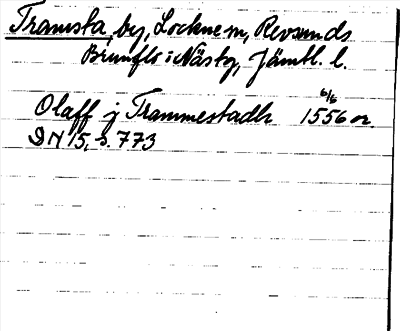 Tramsta by, Lockne sn, Revsunds
Brunflo i Näsby, Jämtl. l.
Olaff j Trammestadh 6/6 1556 or.
DN 15, s. 773